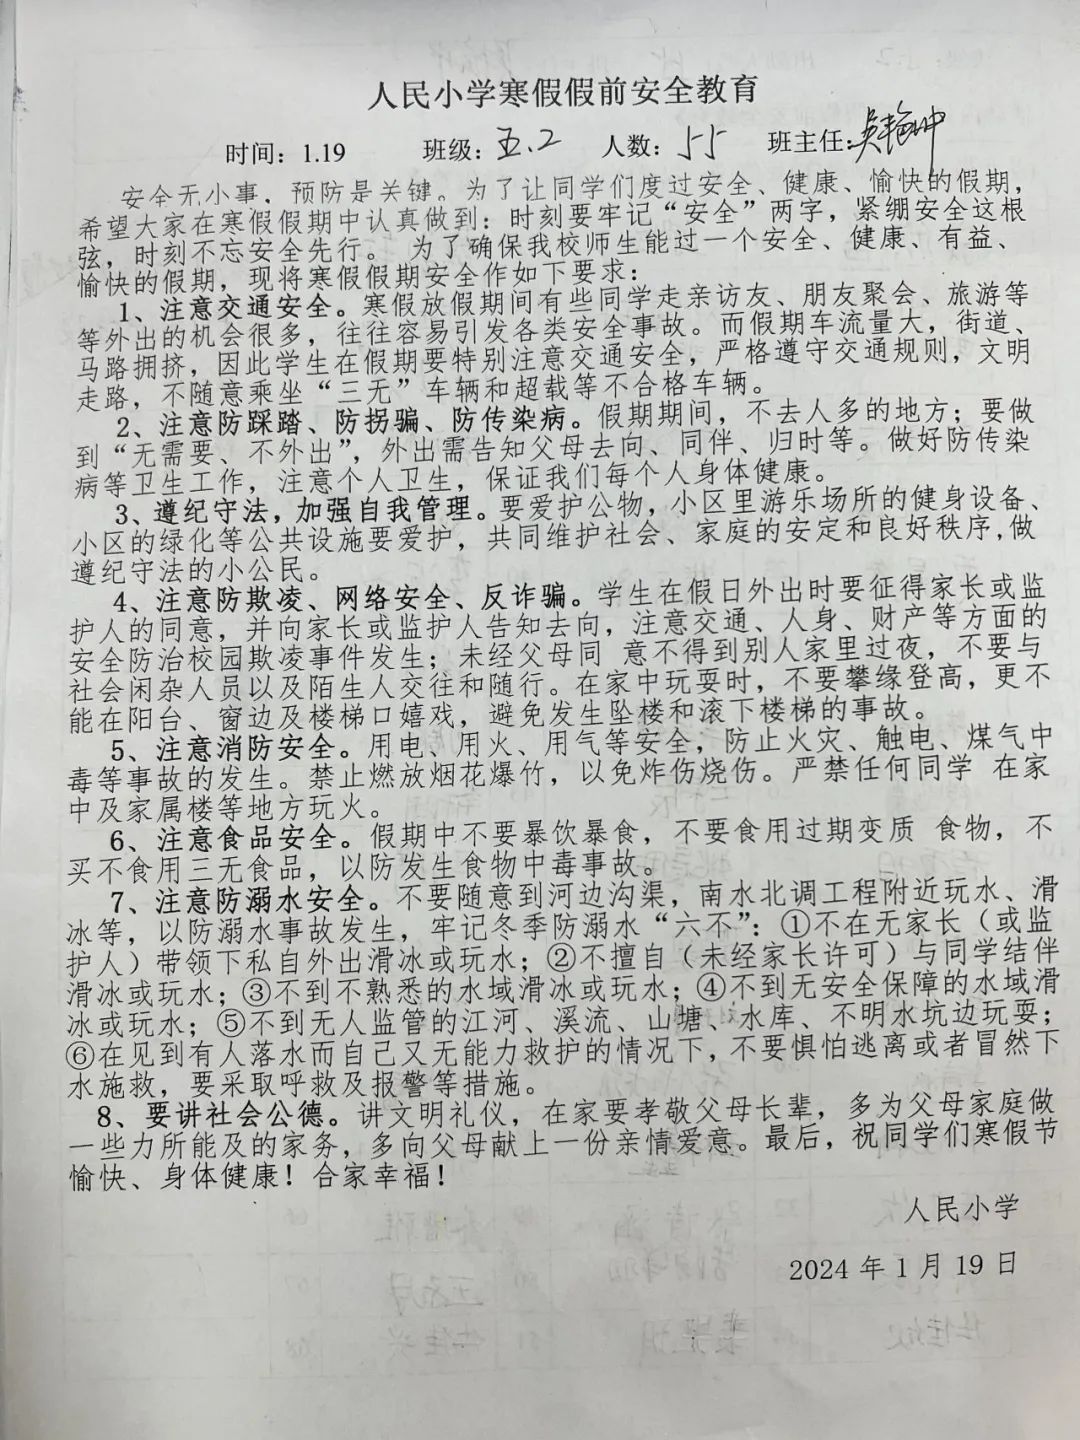 人民小学寒假假前安全教育
时间：1.19 班级：五.2 人数：55 班主任：吴
安全无小事，预防是关键。为了让同学们度过安全、健康、愉快的假期，
希望大家在寒假假期中认真做到：时刻要牢记“安全”两字，紧绷安全这根
弦，时刻不忘安全先行。 为了确保我校师生能过一个安全、健康、有益、
愉快的假期，现将寒假假期安全作如下要求：
1、注意交通安全。寒假放假期间有些同学走亲访友、朋友聚会、旅游等
等外出的机会很多，往往容易引发各类安全事故。而假期车流量大，街道、
马路拥挤，因此学生在假期要特别注意交通安全，严格遵守交通规则，文明
走路，不随意乘坐“三无”车辆和超载等不合格车辆。
2、注意防踩踏、防拐骗、防传染病。假期期间，不去人多的地方；要做
到“无需要、不外出”，外出需告知父母去向、同伴、归时等。做好防传染
病等卫生工作，注意个人卫生，保证我们每个人身体健康。
3、遵纪守法，加强自我管理。要爱护公物，小区里游乐场所的健身设备、
小区的绿化等公共设施要爱护，共同维护社会、家庭的安定和良好秩序,做
遵纪守法的小公民。
4、注意防欺凌、网络安全、反诈骗。学生在假日外出时要征得家长或监
护人的同意，并向家长或监护人告知去向，注意交通、人身、财产等方面的
安全防治校园欺凌事件发生；未经父母同 意不得到别人家里过夜，不要与
社会闲杂人员以及陌生人交往和随行。在家中玩耍时，不要攀缘登高，更不
能在阳台、窗边及楼梯口嬉戏，避免发生坠楼和滚下楼梯的事故。
5、注意消防安全。用电、用火、用气等安全，防止火灾、触电、煤气中
毒等事故的发生。禁止燃放烟花爆竹，以免炸伤烧伤。严禁任何同学 在家
中及家属楼等地方玩火。
6、注意食品安全。假期中不要暴饮暴食，不要食用过期变质 食物，不
买不食用三无食品，以防发生食物中毒事故。
7、注意防溺水安全。不要随意到河边沟渠，南水北调工程附近玩水、滑
冰等，以防溺水事故发生，牢记冬季防溺水“六不”：①不在无家长（或监
护人）带领下私自外出滑冰或玩水；②不擅自（未经家长许可）与同学结伴
滑冰或玩水；③不到不熟悉的水域滑冰或玩水；④不到无安全保障的水域滑
冰或玩水；⑤不到无人监管的江河、溪流、山塘、水库、不明水坑边玩耍；
⑥在见到有人落水而自己又无能力救护的情况下,不要惧怕逃离或者冒然下
水施救，要采取呼救及报警等措施。
8、要讲社会公德。讲文明礼仪，在家要孝敬父母长辈，多为父母家庭做
一些力所能及的家务，多向父母献上一份亲情爱意。最后，祝同学们寒假节
愉快、身体健康！合家幸福！
人民小学
2024 年 1 月 19 日